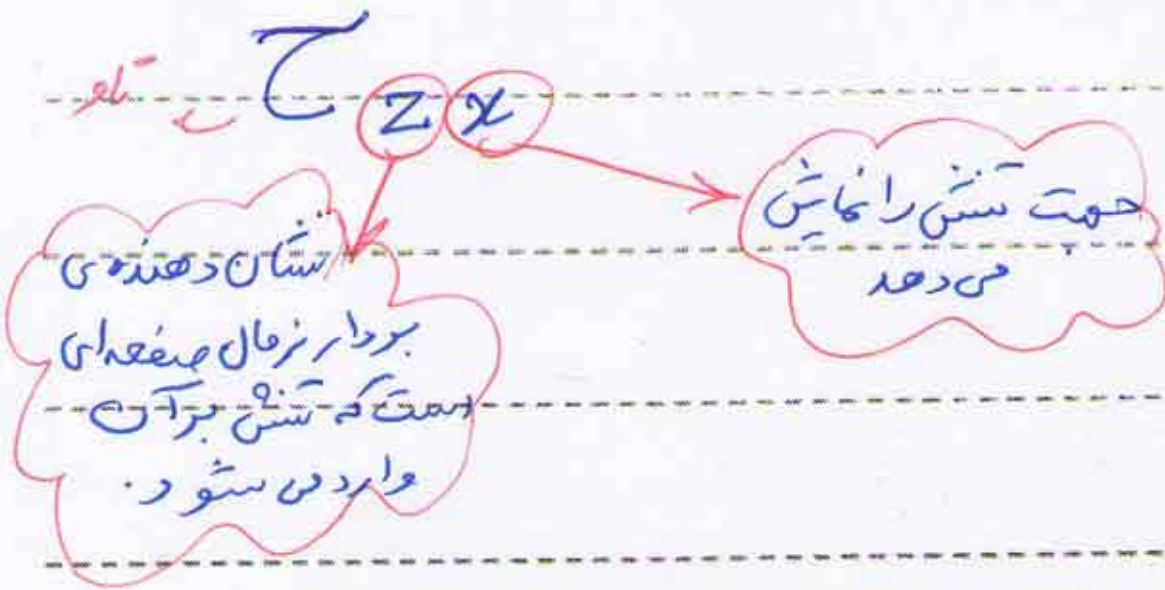 تاو
τ z x
جهت تنش را نمایش
می‌دهد
نشان دهنده‌ی
بردار نرمال صفحه‌ای
است که تنش بر آن
وارد می‌شود.